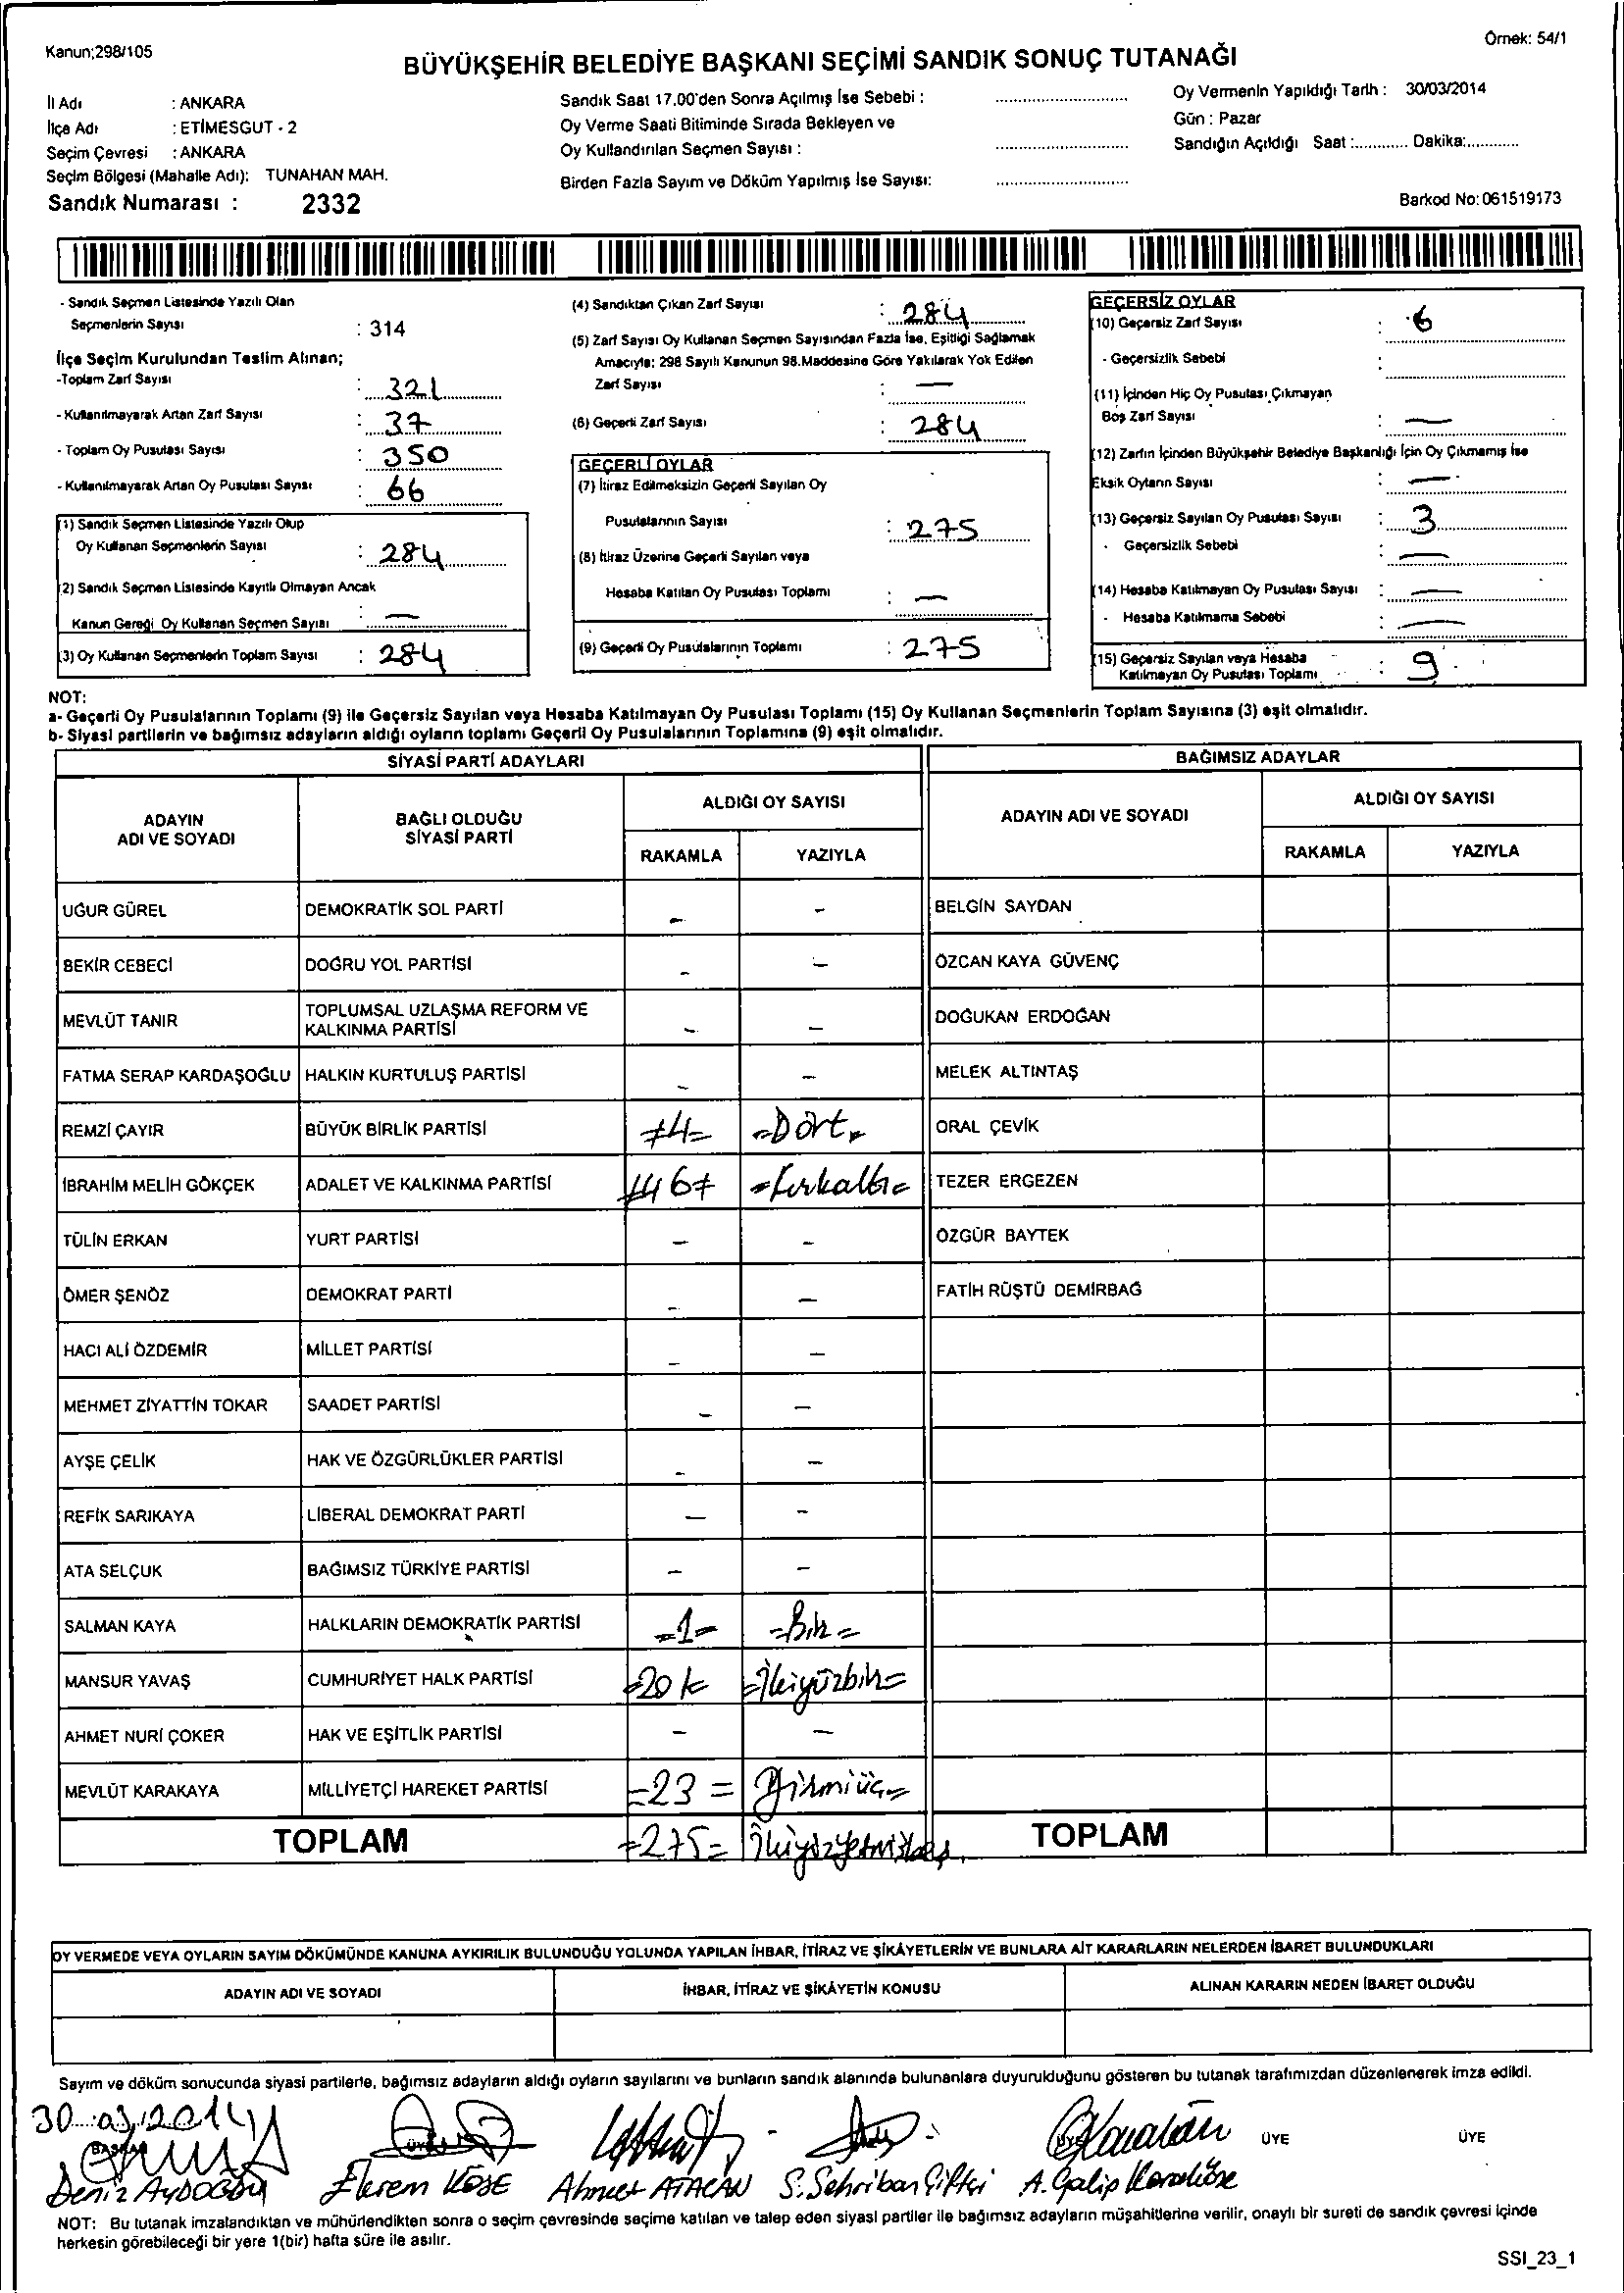 Kanun;298/105
Örnek: 54/1
BÜYÜKŞEHİR BELEDİYE BAŞKANI SEÇİMİ SANDIK SONUÇ TUTANAĞI
İl Adı : ANKARA
İlçe Adı : ETİMESGUT - 2
Seçim Çevresi : ANKARA
Seçim Bölgesi (Mahalle Adı): TUNAHAN MAH.
Sandık Numarası : 2332
Sandık Saat 17.00'den Sonra Açılmış İse Sebebi : ..............................
Oy Verme Saati Bitiminde Sırada Bekleyen ve
Oy Kullandırılan Seçmen Sayısı : ..............................
Birden Fazla Sayım ve Döküm Yapılmış İse Sayısı: ..............................
Oy Vermenin Yapıldığı Tarih : 30/03/2014
Gün : Pazar
Sandığın Açıldığı Saat :............ Dakika:............
Barkod No: 061519173
- Sandık Seçmen Listesinde Yazılı Olan
Seçmenlerin Sayısı : 314
İlçe Seçim Kurulundan Teslim Alınan;
-Toplam Zarf Sayısı : 321
- Kullanılmayarak Artan Zarf Sayısı : 37
- Toplam Oy Pusulası Sayısı : 350
- Kullanılmayarak Artan Oy Pusulası Sayısı : 66
(1) Sandık Seçmen Listesinde Yazılı Olup
Oy Kullanan Seçmenlerin Sayısı : 284
(2) Sandık Seçmen Listesinde Kayıtlı Olmayan Ancak
Kanun Gereği Oy Kullanan Seçmen Sayısı : —
(3) Oy Kullanan Seçmenlerin Toplam Sayısı : 284
(4) Sandıktan Çıkan Zarf Sayısı : 284
(5) Zarf Sayısı Oy Kullanan Seçmen Sayısından Fazla İse, Eşitliği Sağlamak
Amacıyla; 298 Sayılı Kanunun 98.Maddesine Göre Yakılarak Yok Edilen
Zarf Sayısı : —
(6) Geçerli Zarf Sayısı : 284
GEÇERLİ OYLAR
(7) İtiraz Edilmeksizin Geçerli Sayılan Oy
Pusulalarının Sayısı : 275
(8) İtiraz Üzerine Geçerli Sayılan veya
Hesaba Katılan Oy Pusulası Toplamı : —
(9) Geçerli Oy Pusulalarının Toplamı : 275
GEÇERSİZ OYLAR
(10) Geçersiz Zarf Sayısı : 6
- Geçersizlik Sebebi :
(11) İçinden Hiç Oy Pusulası Çıkmayan
Boş Zarf Sayısı : —
(12) Zarfın İçinden Büyükşehir Belediye Başkanlığı İçin Oy Çıkmamış İse
Eksik Oyların Sayısı : —
(13) Geçersiz Sayılan Oy Pusulası Sayısı : 3
- Geçersizlik Sebebi : —
(14) Hesaba Katılmayan Oy Pusulası Sayısı : —
- Hesaba Katılmama Sebebi : —
(15) Geçersiz Sayılan veya Hesaba
Katılmayan Oy Pusulası Toplamı : 9
NOT:
a- Geçerli Oy Pusulalarının Toplamı (9) ile Geçersiz Sayılan veya Hesaba Katılmayan Oy Pusulası Toplamı (15) Oy Kullanan Seçmenlerin Toplam Sayısına (3) eşit olmalıdır.
b- Siyasi partilerin ve bağımsız adayların aldığı oyların toplamı Geçerli Oy Pusulalarının Toplamına (9) eşit olmalıdır.
SİYASİ PARTİ ADAYLARI
ADAYIN
ADI VE SOYADI
BAĞLI OLDUĞU
SİYASİ PARTİ
ALDIĞI OY SAYISI
RAKAMLA YAZIYLA
UĞUR GÜREL DEMOKRATİK SOL PARTİ - -
BEKİR CEBECİ DOĞRU YOL PARTİSİ - -
MEVLÜT TANIR TOPLUMSAL UZLAŞMA REFORM VE
KALKINMA PARTİSİ - -
FATMA SERAP KARDAŞOĞLU HALKIN KURTULUŞ PARTİSİ - -
REMZİ ÇAYIR BÜYÜK BİRLİK PARTİSİ =4= =Dört=
İBRAHİM MELİH GÖKÇEK ADALET VE KALKINMA PARTİSİ =46= =Kırkaltı=
TÜLİN ERKAN YURT PARTİSİ - -
ÖMER ŞENÖZ DEMOKRAT PARTİ - -
HACI ALİ ÖZDEMİR MİLLET PARTİSİ - -
MEHMET ZİYATTİN TOKAR SAADET PARTİSİ - -
AYŞE ÇELİK HAK VE ÖZGÜRLÜKLER PARTİSİ - -
REFİK SARIKAYA LİBERAL DEMOKRAT PARTİ - -
ATA SELÇUK BAĞIMSIZ TÜRKİYE PARTİSİ - -
SALMAN KAYA HALKLARIN DEMOKRATİK PARTİSİ =1= =Bir=
MANSUR YAVAŞ CUMHURİYET HALK PARTİSİ =201= =İkiyüzbir=
AHMET NURİ ÇOKER HAK VE EŞİTLİK PARTİSİ - -
MEVLÜT KARAKAYA MİLLİYETÇİ HAREKET PARTİSİ =23= Yirmiüç=
TOPLAM =275= İkiyüzyetmişbeş
BAĞIMSIZ ADAYLAR
ADAYIN ADI VE SOYADI
ALDIĞI OY SAYISI
RAKAMLA YAZIYLA
BELGİN SAYDAN
ÖZCAN KAYA GÜVENÇ
DOĞUKAN ERDOĞAN
MELEK ALTINTAŞ
ORAL ÇEVİK
TEZER ERGEZEN
ÖZGÜR BAYTEK
FATİH RÜŞTÜ DEMİRBAĞ
TOPLAM
OY VERMEDE VEYA OYLARIN SAYIM DÖKÜMÜNDE KANUNA AYKIRILIK BULUNDUĞU YOLUNDA YAPILAN İHBAR, İTİRAZ VE ŞİKAYETLERİN VE BUNLARA AİT KARARLARIN NELERDEN İBARET BULUNDUKLARI
ADAYIN ADI VE SOYADI İHBAR, İTİRAZ VE ŞİKAYETİN KONUSU ALINAN KARARIN NEDEN İBARET OLDUĞU
Sayım ve döküm sonucunda siyasi partilerle, bağımsız adayların aldığı oyların sayılarını ve bunların sandık alanında bulunanlara duyurulduğunu gösteren bu tutanak tarafımızdan düzenlenerek imza edildi.
30.03.2014
BAŞKAN ÜYE ÜYE ÜYE ÜYE
Deniz AYDOĞDU Ekrem KÖSE Ahmet ATACAN S.Şehriban Çiftçi A.Galip Karaköse
NOT: Bu tutanak imzalandıktan ve mühürlendikten sonra o seçim çevresinde seçime katılan ve talep eden siyasi partiler ile bağımsız adayların müşahitlerine verilir, onaylı bir sureti de sandık çevresi içinde
herkesin görebileceği bir yere 1(bir) hafta süre ile asılır.
SSI_23_1